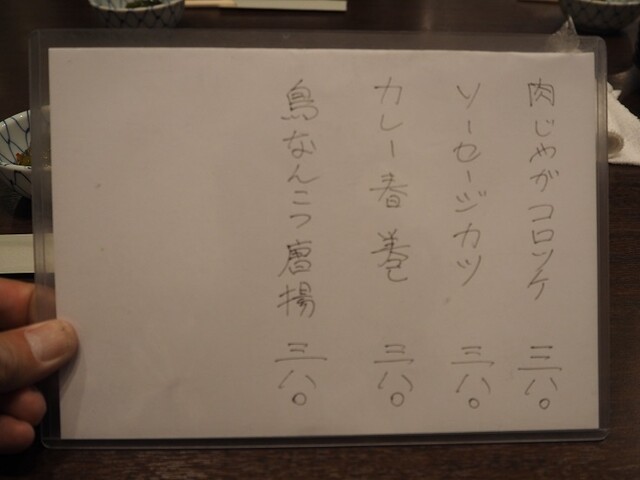 肉じゃがコロッケ 三八〇
ソーセージカツ 三八〇
カレー春巻 三八〇
鳥なんこつ唐揚 三八〇